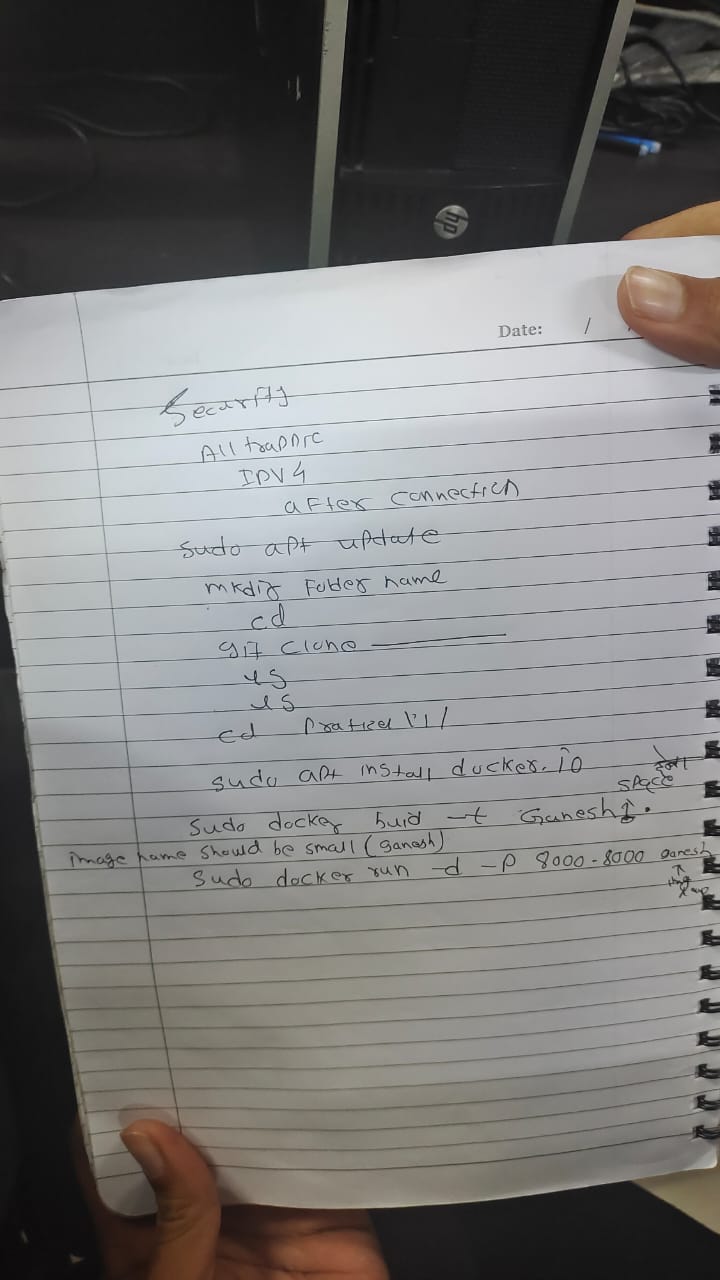 hp
Date: /
Security
All trapnic
IPV4
after connection
sudo apt update
mkdir Folder name
cd
git clone
ls
ls
cd
sudo apt install docker.io
space
Sudo docker buid -t Ganesh .
image name should be small (ganesh)
Sudo docker run -d -p 8000-8000 ganesh